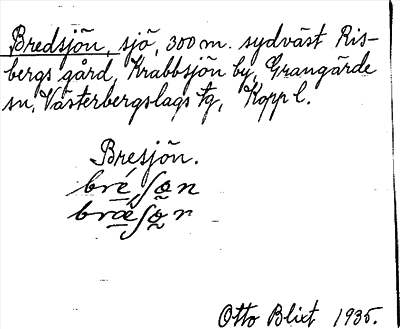 Bredsjön, sjö, 300 m. sydväst Ris-
bergs gård, Krabbsjön by, Grangärde
sn, Västerbergslags tg, Kopp l.
Bresjön.
bré ʃọn
Otto Blixt 1935.